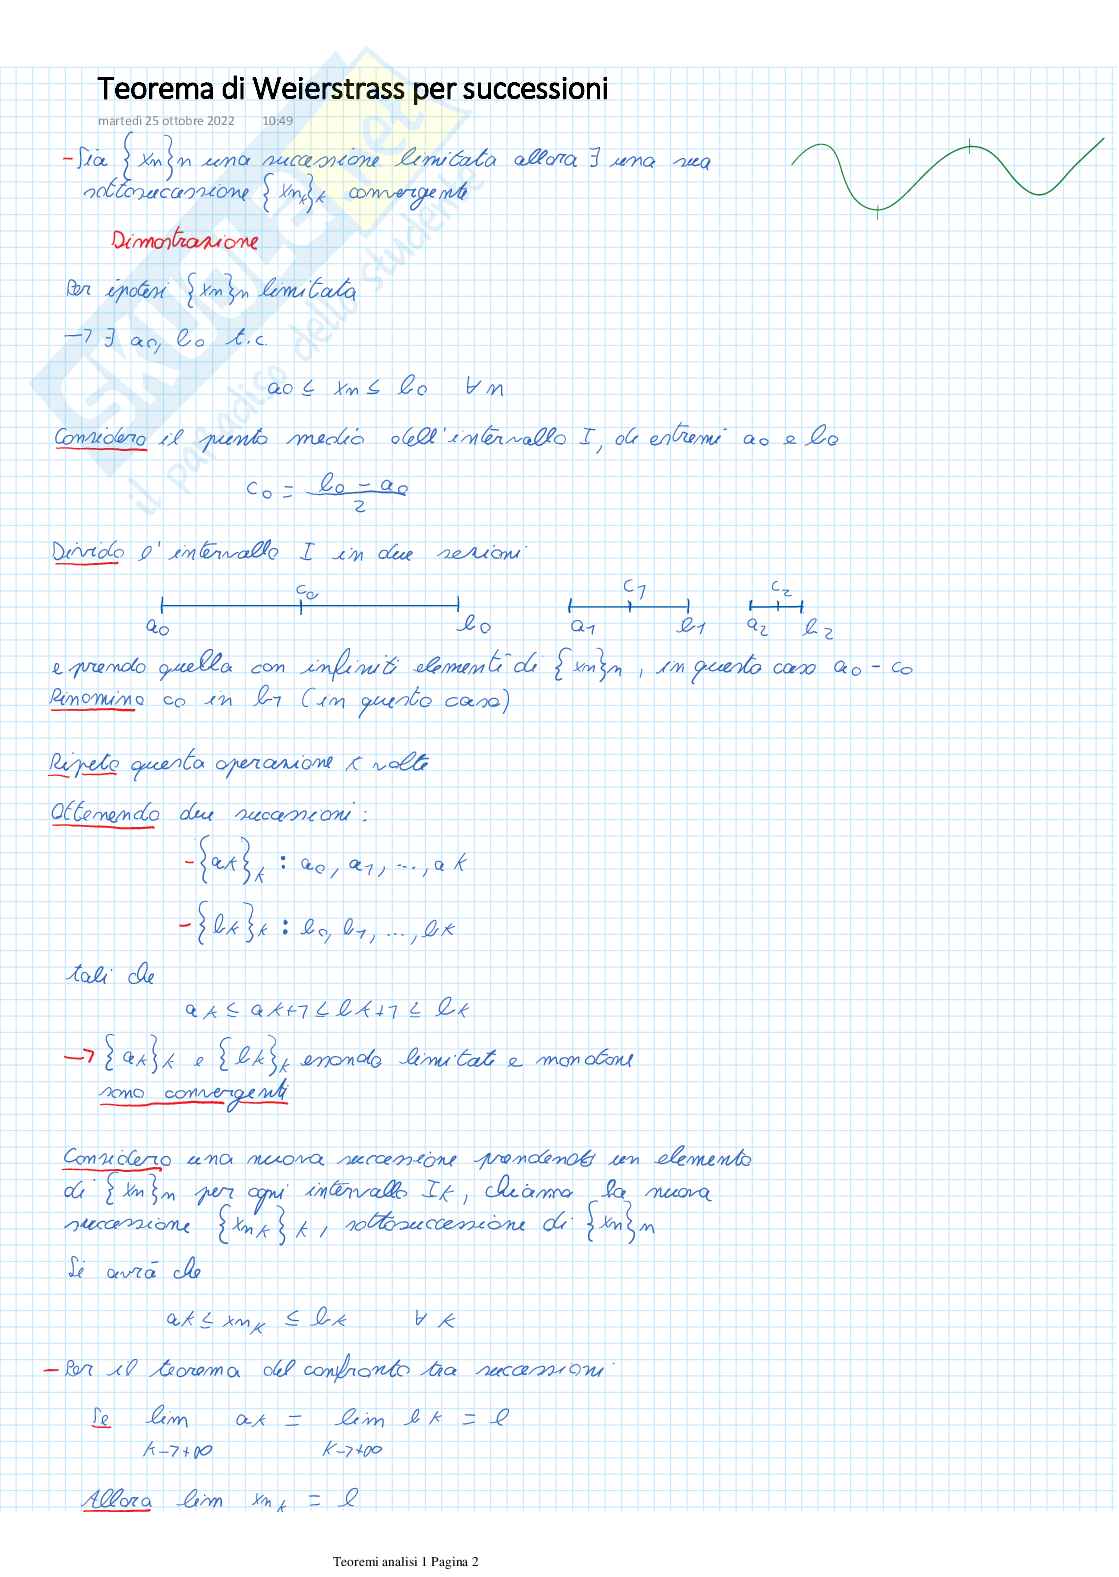 Teorema di Weierstrass per successioni
martedì 25 ottobre 2022 10:49
- Sia {xn}n una successione limitata allora ∃ una sua
sottosuccessione {xnk}k convergente
Dimostrazione
Per ipotesi {xn}n limitata
→ ∃ a0, b0 t.c.
a0 ≤ xn ≤ b0 ∀ n
Considero il punto medio dell'intervallo I, di estremi a0 e b0
c0 = (b0 - a0)/2
Divido l'intervallo I in due sezioni
c0 c1 c2
a0 b0 a1 b1 a2 b2
e prendo quella con infiniti elementi di {xn}n, in questo caso a0 - c0
Rinomino c0 in b1 (in questo caso)
Ripeto questa operazione k volte
Ottenendo due successioni:
- {ak}k : a0, a1, ..., ak
- {bk}k : b0, b1, ..., bk
tali che
ak ≤ ak+1 ≤ bk+1 ≤ bk
→ {ak}k e {bk}k essendo limitate e monotone
sono convergenti
Considero una nuova successione prendendo un elemento
di {xn}n per ogni intervallo Ik, chiamo la nuova
successione {xnk}k, sottosuccessione di {xn}n
Si avrà che
ak ≤ xnk ≤ bk ∀ k
- Per il teorema del confronto tra successioni
Se lim ak = lim bk = l
k→+∞ k→+∞
Allora lim xnk = l
Teoremi analisi 1 Pagina 2
SKUOLA.net
il paradiso dello studente